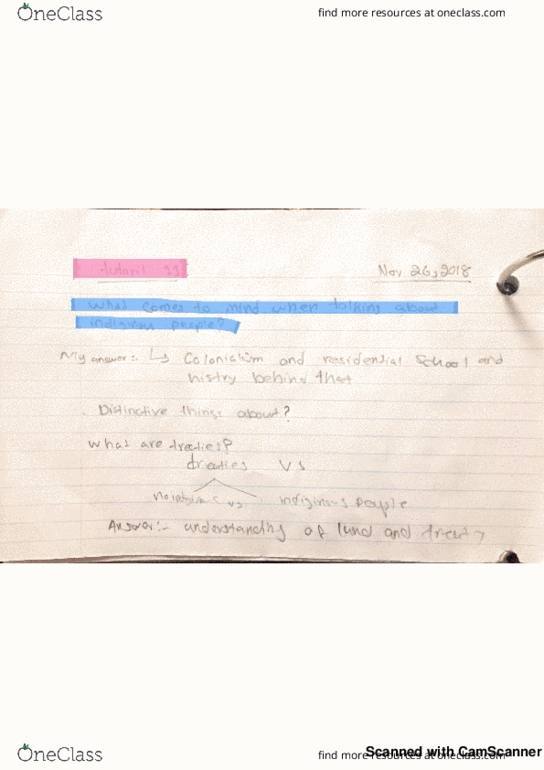 OneClass
find more resources at oneclass.com
tutoril 11
Nov 26, 2018
What comes to mind when talking about
indigious people?
My answer:- ↳ Colonialism and residential School and
histry behind that
Distinctive things about?
What are treaties?
treaties vs
vs indiginous people
Answer:- understanding of land and treaty
OneClass
find more resources at oneclass.com
Scanned with CamScanner